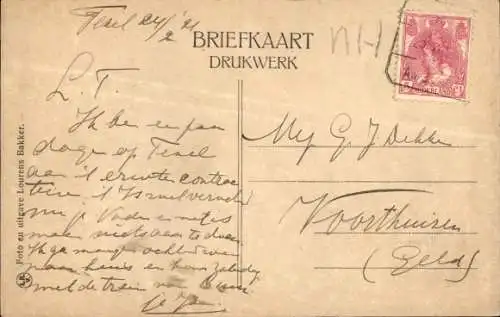 Texel 24/2 '21
BRIEFKAART
DRUKWERK
NH
L. T.
Ik ben een paar
dagen op Texel
aan 't
Vader en
maar niets aan te doen.
Ik ga morgen ochtend weer
naar huis en kom Zaterdag
met de trein van
Mej G. J Dekker
Voorthuizen
(Geld)
NEDERLAND
Foto en uitgave Lourens Bakker.